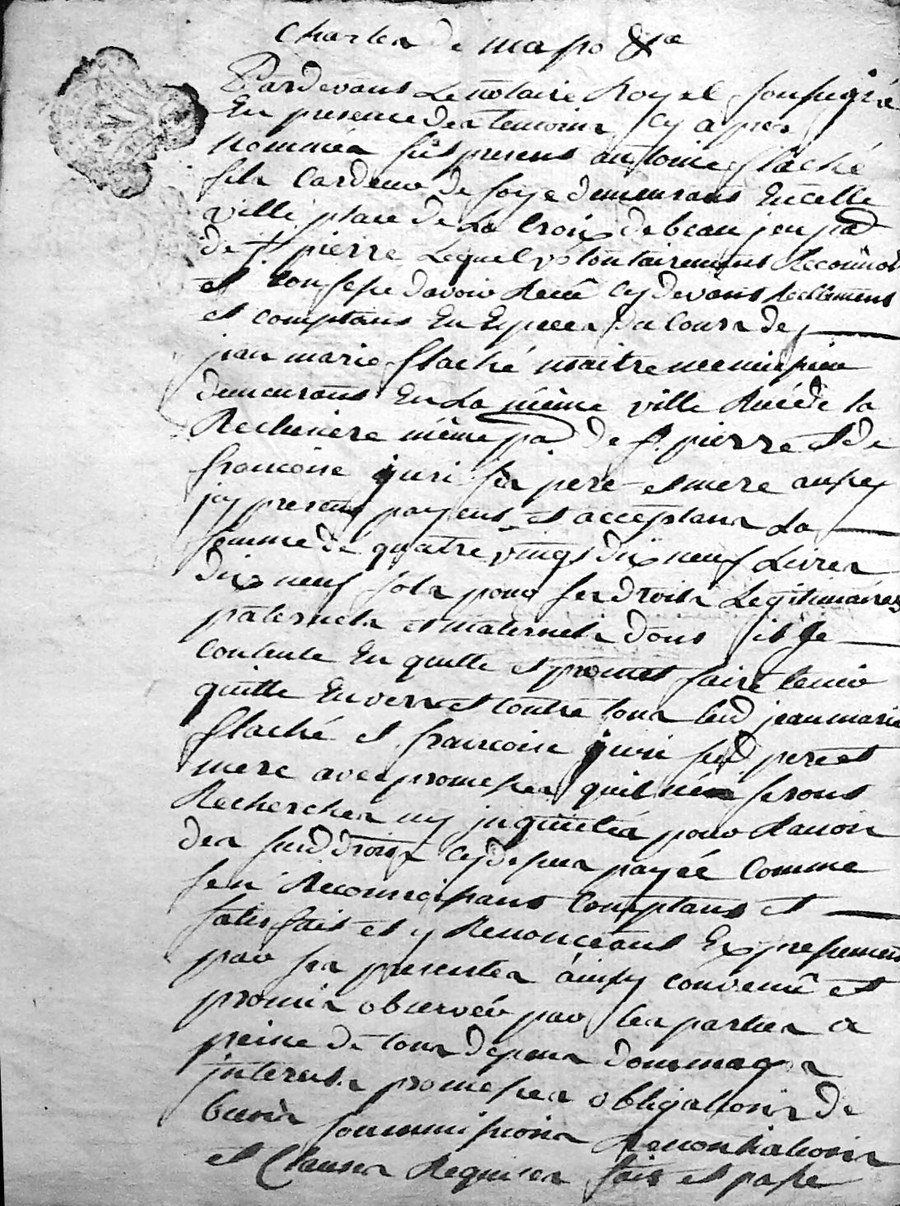 Charles de mayo
Pardevant Le notaire Royal soussigné
En presence des temoins cy apres
nommés fut present antoine flaché
fils Cardeur de soye demeurant En cette
ville place de La Croix de beaujeu pad
de st pierre Lequel volontairement Reconnoit
et confessé davoir Receu cy devant Reellement
et comptant En Especes du cours de
jean marie flaché maitre menuisier
demeurant En La même ville Rüe de la
même pad de st pierre et de
francoise juri ses pere et mere aussy
jcy present payent et acceptans La
somme de quatre vingt dix neuf Livres
dix neuf sols pour ses droits Legitimaires
paternels et maternels dont il se
contente En quitte et promet faire tenir
quitte Envers et contre tous lesd jean marie
flaché et francoise juri sesd pere et
mere avec promesses quil nén seront
Recherches ny jnquietés pour Raison
des susd droits cy dessus payée comme
sen Reconnoissant comptant et
satisfait et y Renonceant Expressement
par ses presentes áinsy convenü et
promis observér par les parties a
peine de tous depens dommages
jnterests promesses obligations de
biens soummissions Renontiations
et Clauses Requises fait et passé